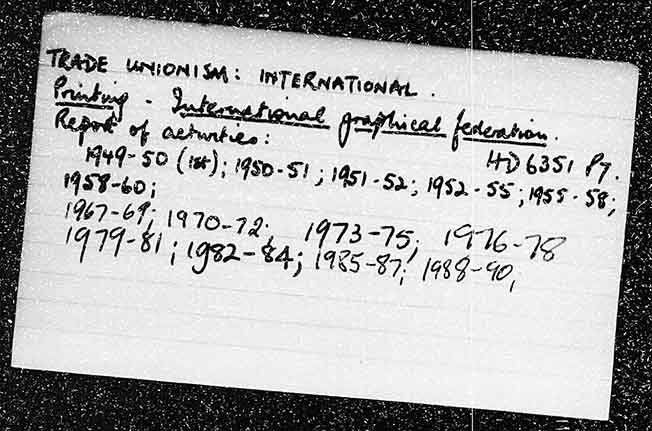 TRADE UNIONISM: INTERNATIONAL.
Printing - International graphical federation.
Report of activities:
HD 6351 P7.
1949-50 (1st); 1950-51; 1951-52; 1952-55; 1955-58;
1958-60;
1967-69; 1970-72; 1973-75; 1976-78
1979-81; 1982-84; 1985-87; 1988-90,